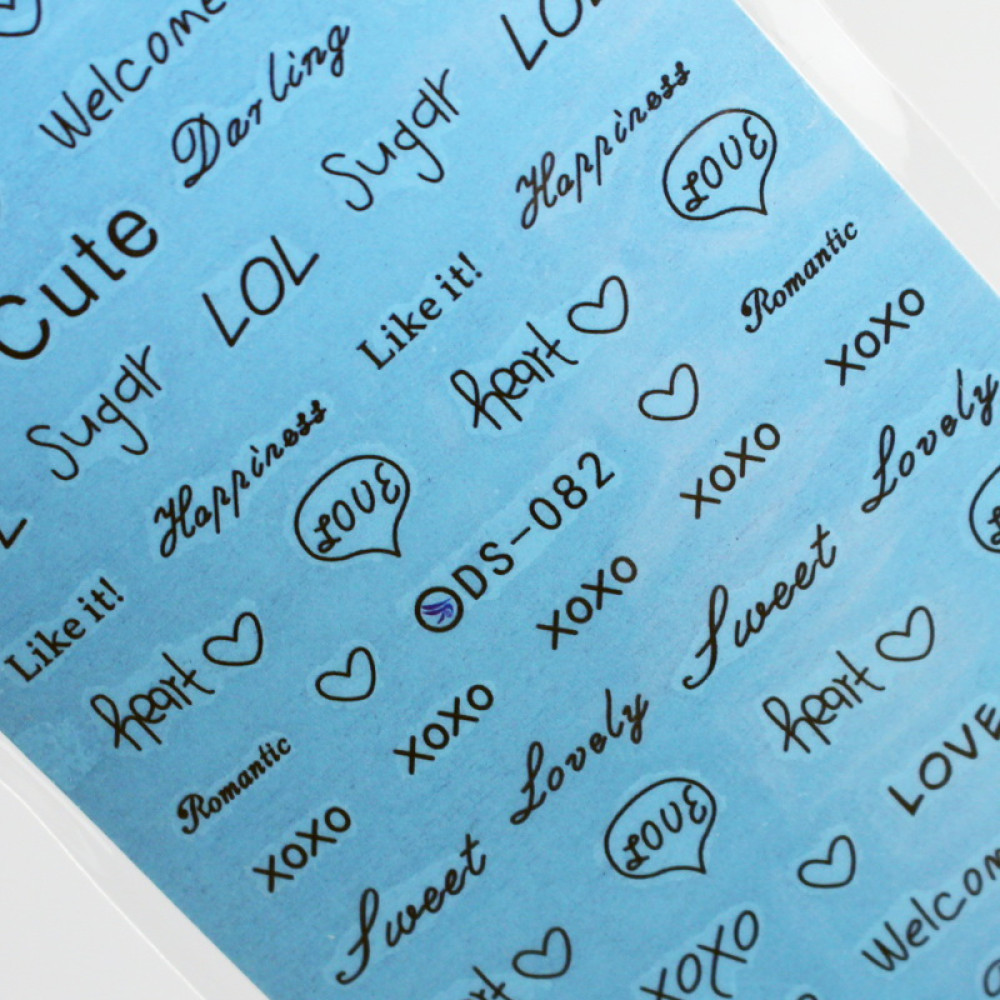 Welcome
Darling
Sugar
Happiness
LOVE
Cute
LOL
Like it!
heart
Romantic
XOXO
Sugar
Happiness
LOVE
DS-082
XOXO
Lovely
Like it!
heart
XOXO
Sweet
heart
Romantic
XOXO
Lovely
LOVE
XOXO
Sweet
LOVE
XOXO